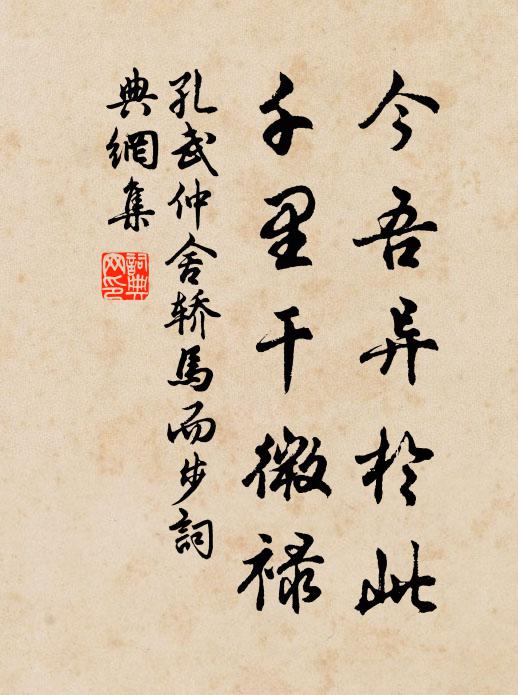 今吾异於此
千里干微禄
孔武仲舍轿馬而步詞
典網集
詞典網印